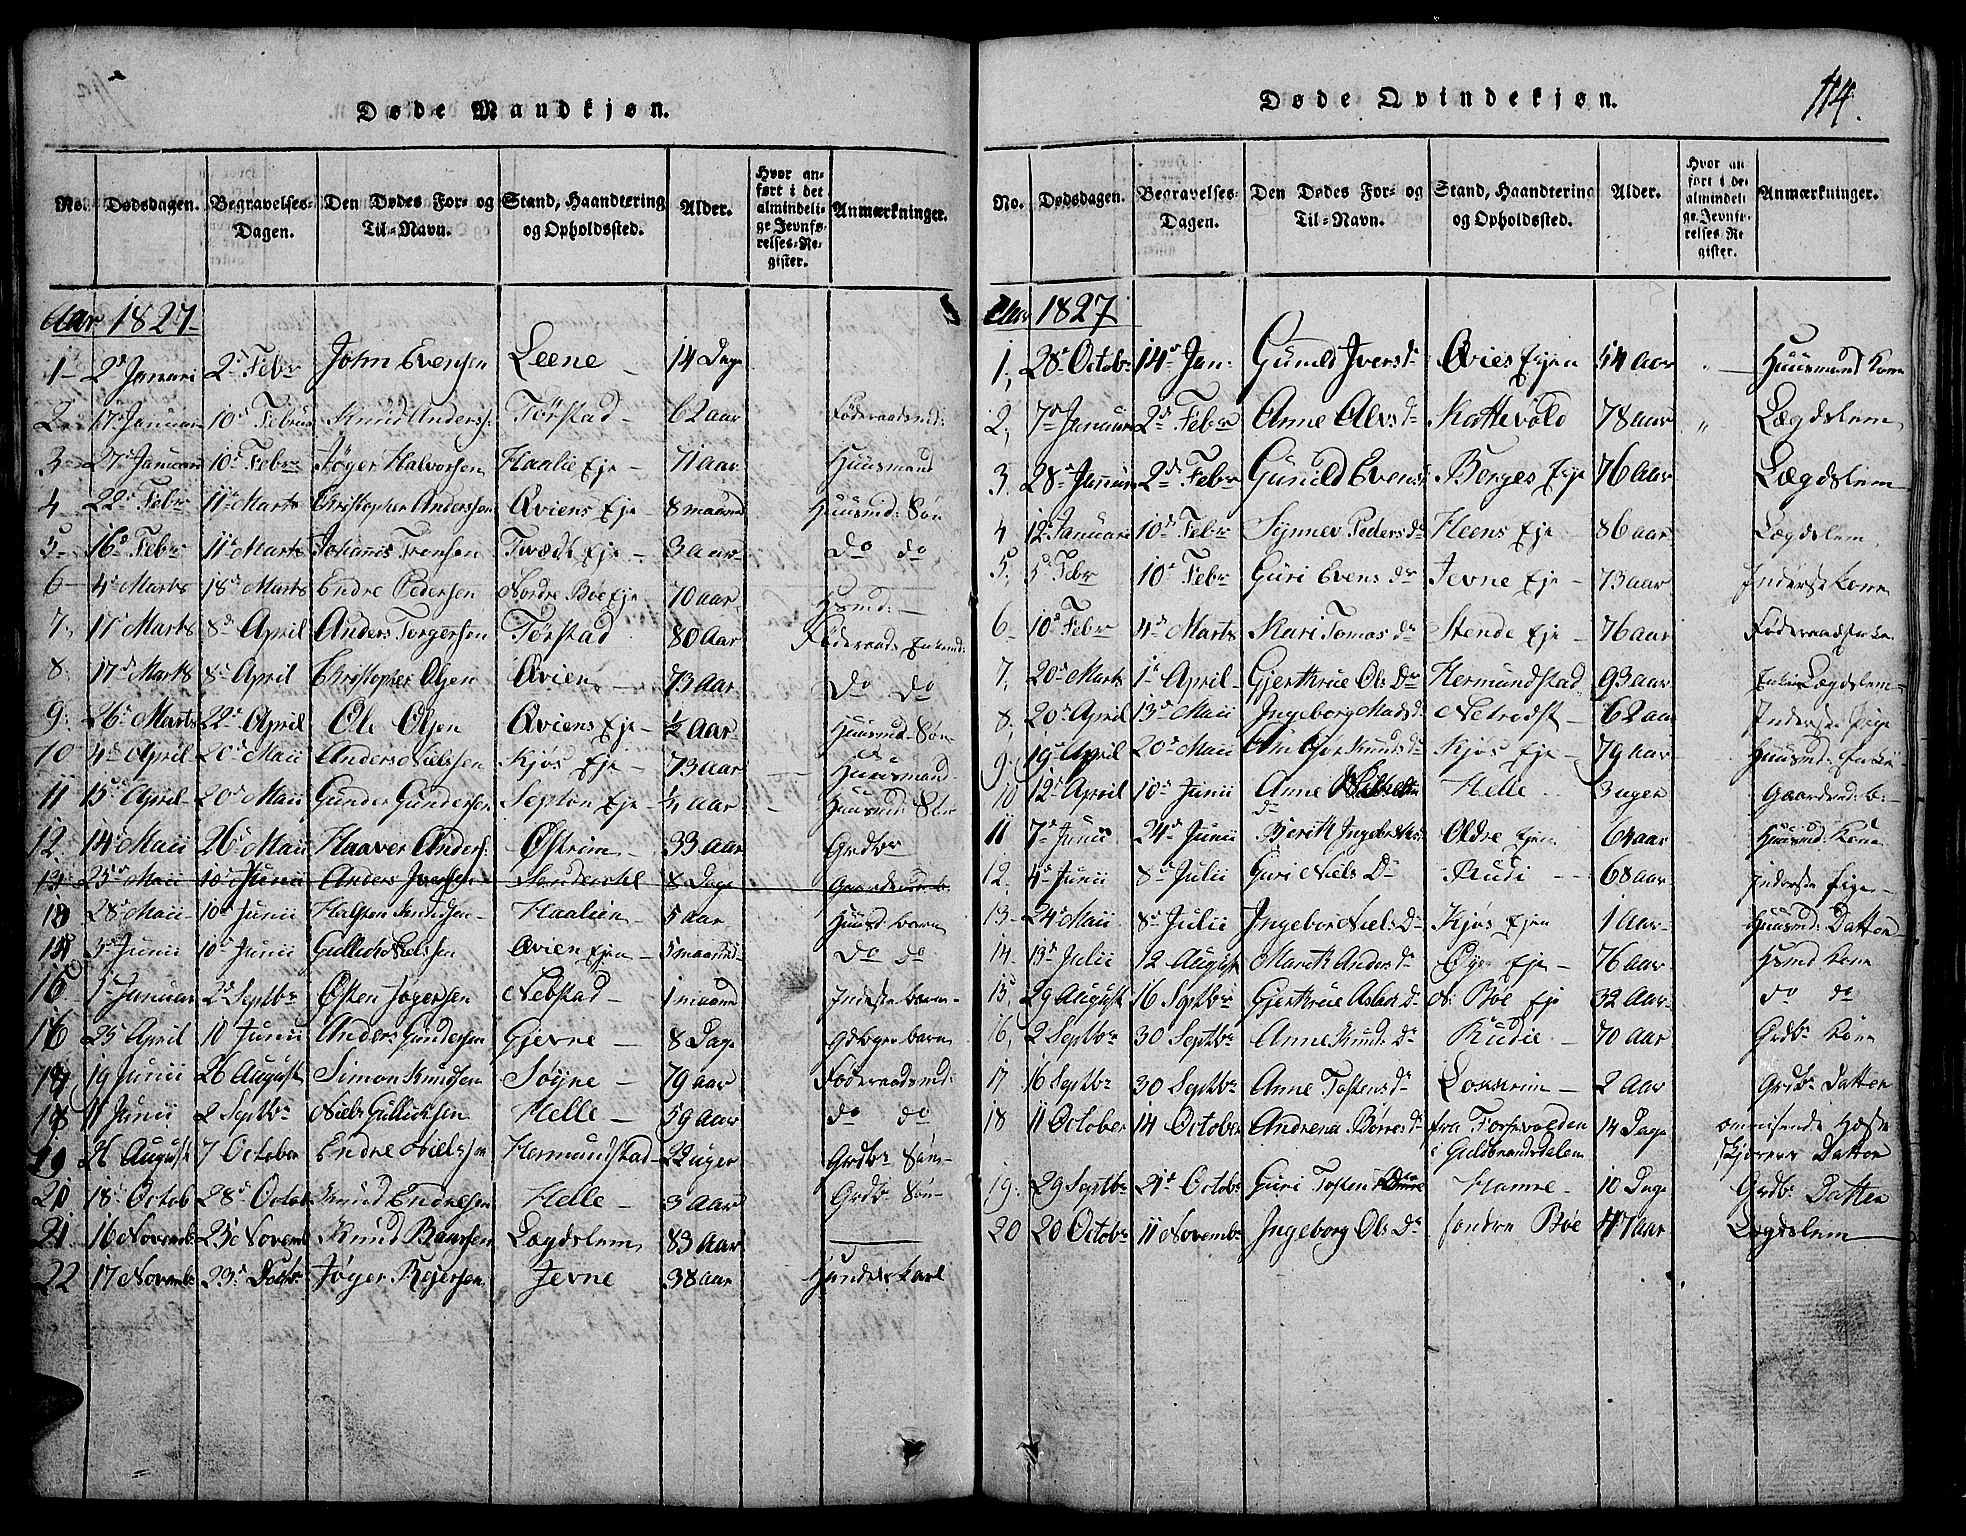 Døde Mandkjøn.
No. Dødsdagen. Begravelses-Dagen. Den Dødes For- og Til-Navn. Stand, Haandtering og Opholdssted. Alder. Hvor anført i det almindelige Jevnførelses-Register. Anmærkninger.
Aar 1827
1 2d Januari 2d Febr John Evensen Leene 14 Dage
2 17d Januari 10d Februar Knud Anders: Tørstad 62 aar Föderaadsmd:
3 27d Januari 10d Febr Jøger Halvorsen Haalie Eje 71 aar Huusmand
4 22d Febr 11te Marts Christopher Anderssen Qviens Eje 8 maaned Huusmd: Søn
5 16d Febr 11te Marts Johannis Ivensen Tvædt Eje 3 Aar do do
6 4d Marts 18d Marts Endre Pedersen Nordre Böe Eje 70 aar Hsmd:
7 17 Marts 8d April Anders Torgersen Tørstad 80 Aar Föderaads Enkemd:
8 17d Marts 8d April Christopher Olsen Qvien 73 Aar do do
9 26d Marts 22d April Ole Olsen Qviens Eje ½ Aar Huusmd: Søn
10 4d April 20d Maii Anders Nielssen Kjøs Eje 73 aar Huusmand
11 15d April 20d Maii Gunder Gundersen Septon Eje ¼ aar Huusmd: Søn
12 14d Maii 26d Maii Haaver Anders: Østrim 33 Aar Grdbr
13 23d Maii 10d Junii Anders Iversen 8 Dage Gaardmd b.
13 28d Maii 10d Junii Halsten Knudsen Haalien 5 aar Huusmd barn
14 3d Junii 10d Junii Gullich Nielssen Qvien Ejen 5 maaned do do
15 1d Januar 2d Septbr Østen Jøgersen Nebstad 1 maaned Inderste barn
16 23d April 10 Junii Anders Gundersen Gjevne 8 Dage Gdbgr barn
17 19 Junii 26 August Simon Knudsen Søyne 79 aar Föderaadsmd:
18 11 Junii 2 Septbr Niels Gullichsen Helle 59 Aar do do
19 26 August 7 October Endre Nielssen Hermundstad 22 uger Grdbr Søn
20 18d Octob 28d Octob Knud Endresen Helle 3 Aar Grdbr Søn
21 16 Novemb 25 Novemb Knud Baarsen Lægdslem 83 Aar
22 17 Novemb 23d Jøger Rejersen Jevne 38 aar Karl
Døde Qvindekjøn.
114.
No. Dødsdagen. Begravelses-Dagen. Den Dødes For- og Til-Navn. Stand, Haandtering og Opholdssted. Alder. Hvor anført i det almindelige Jevnførelses-Register. Anmærkninger.
Aar 1827
1, 28d Octobr 14d Jan: Gunild Ivers Dr Qvies Ejen 54 aar " Huusmand Kone
2, 7d Januari 2d Febr Anne Alvs Dr Kattevold 78 aar " Lægdslem
3. 28d Januari 2d Febr Gunild Evens Borges Eje 76 Aar Lægdslem
4 12 Januari 10d Febr Synnev Peders Dr Heens Eje 86 aar Lægdslem
5, 5d Febr 10d Febr Guri Evens Dr Jevne Eje 73 aar Inderste Kone
6 10d Febr 4d Marts Kari Tomas Dr Stende Eje 76 aar
7, 20d Marts 1te April Gjertrue Ols Dr Hermundstad 93 aar Lægdslem
8, 20d April 13d Maii Ingeborg Mads Dr 62 aar Inderste Pige
9, 19d April 20d Maii Knuds Dr Kjøs Eje 79 aar Huusmd: Enke
10 12d April 10d Junii Anne Helle 3 uger Gaardmd: b:
11 7d Junii 24d Junii Berith Ingebr Oldre Ejen 64 aar Huusmd: Kone
12. 4d Junii 8d Julii Guri Niels Dr Rudi 68 aar Inderste Pige
13 24d Maii 8d Julii Ingebor Niels Dr Kjøs Ejen 1 Aar Huusmd: Datter
14. 13d Julii 12 August Marith Anders Dr Øye Eje 76 aar Hsmd Kone
15, 29 August 16 Septbr Gjertrue Aslak Dr N: Böe Eje 32 Aar do do
16, 2 Septbr 30 Septbr Anne Knuds Dr Rudie 70 Aar Grdbr Kone
17 16 Septbr 30 Septbr Anne Tostens Dr 2 Aar Grdbr Datter
18 11 October 14 October Andrena Børres Dr fra i Guldbrandsdalen 14 Dage omreisende Heste Skjærers Datter
19 29 Septbr 21d Octobr Guri Tosten Hamre 10 Dage Grdbr Datter
20 20 Octobr 11 Novembr Ingeborg Ols Dr søndre Böe 47 aar Lægdslem